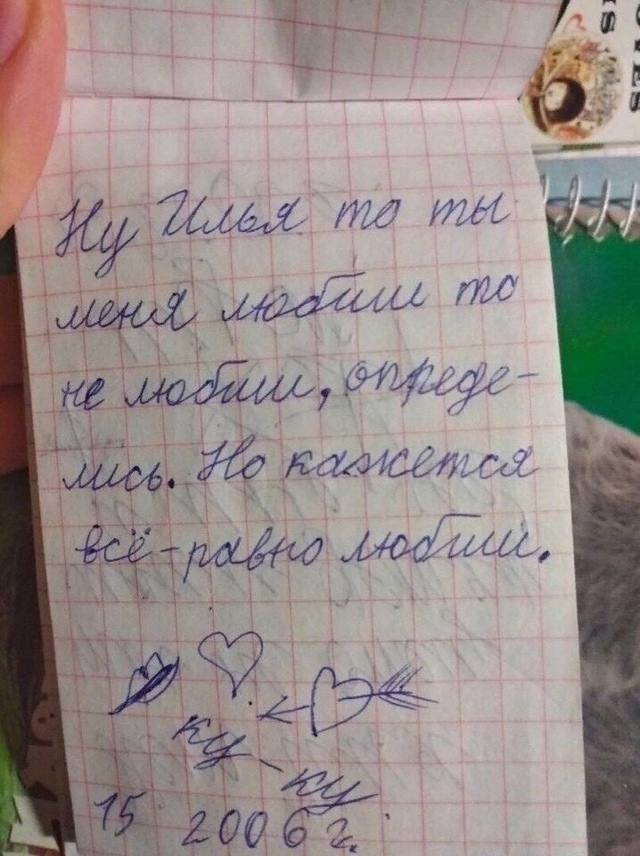 ES
IS
Ну Илья то ты
меня любиш то
не любиш, опреде-
лись. Но кажется
всё-равно любиш.
ку-ку
15 2006 г.